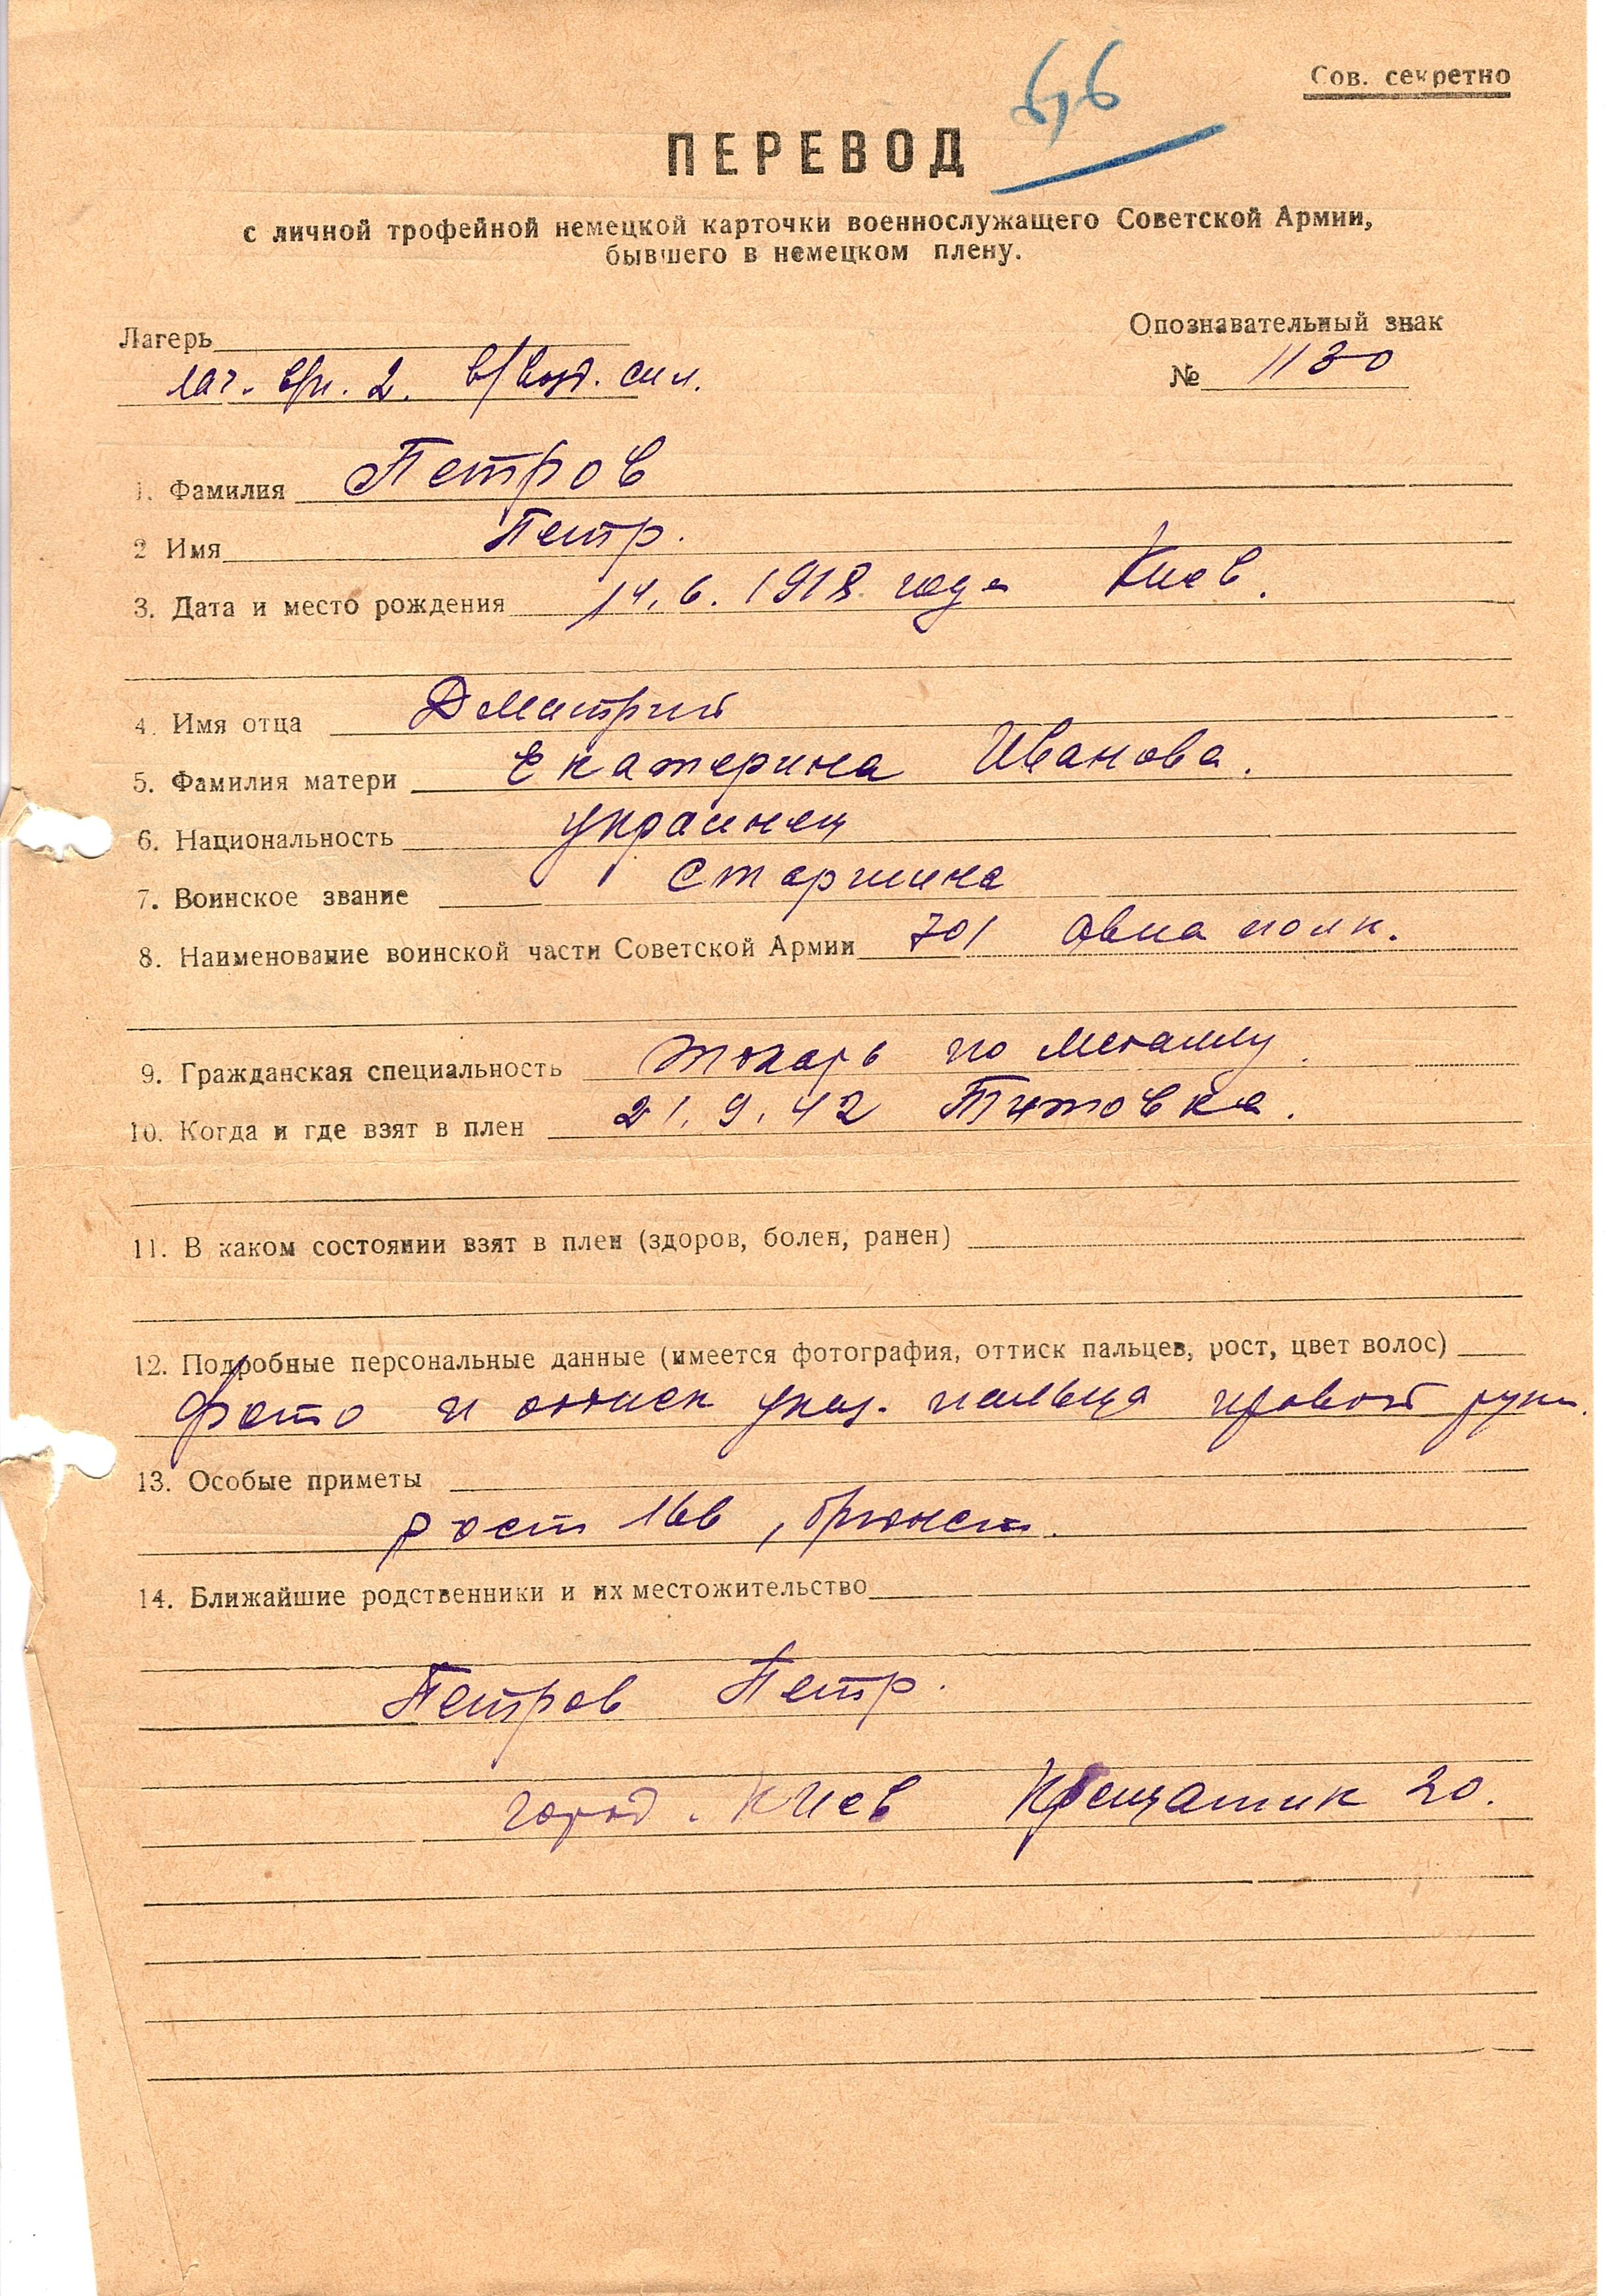 66
Сов. секретно
ПЕРЕВОД
с личной трофейной немецкой карточки военнослужащего Советской Армии,
бывшего в немецком плену.
Лагерь
Опознавательный знак
лаг. 2. в/возд. сил.
№ 1130
1. Фамилия Петров
2 Имя Петр.
3. Дата и место рождения 14.6.1918 года Киев.
4. Имя отца Дмитрий
5. Фамилия матери Екатерина Иванова.
6. Национальность украинец
7. Воинское звание старшина
8. Наименование воинской части Советской Армии 701 авиа полк.
9. Гражданская специальность токарь по металлу.
10. Когда и где взят в плен 21.9.42 Титовка.
11. В каком состоянии взят в плен (здоров, болен, ранен)
12. Подробные персональные данные (имеется фотография, оттиск пальцев, рост, цвет волос)
Фото и оттиск указ. пальца правой руки.
13. Особые приметы
рост 166, брюнет.
14. Ближайшие родственники и их местожительство
Петров Петр.
город. Киев Крещатик 20.